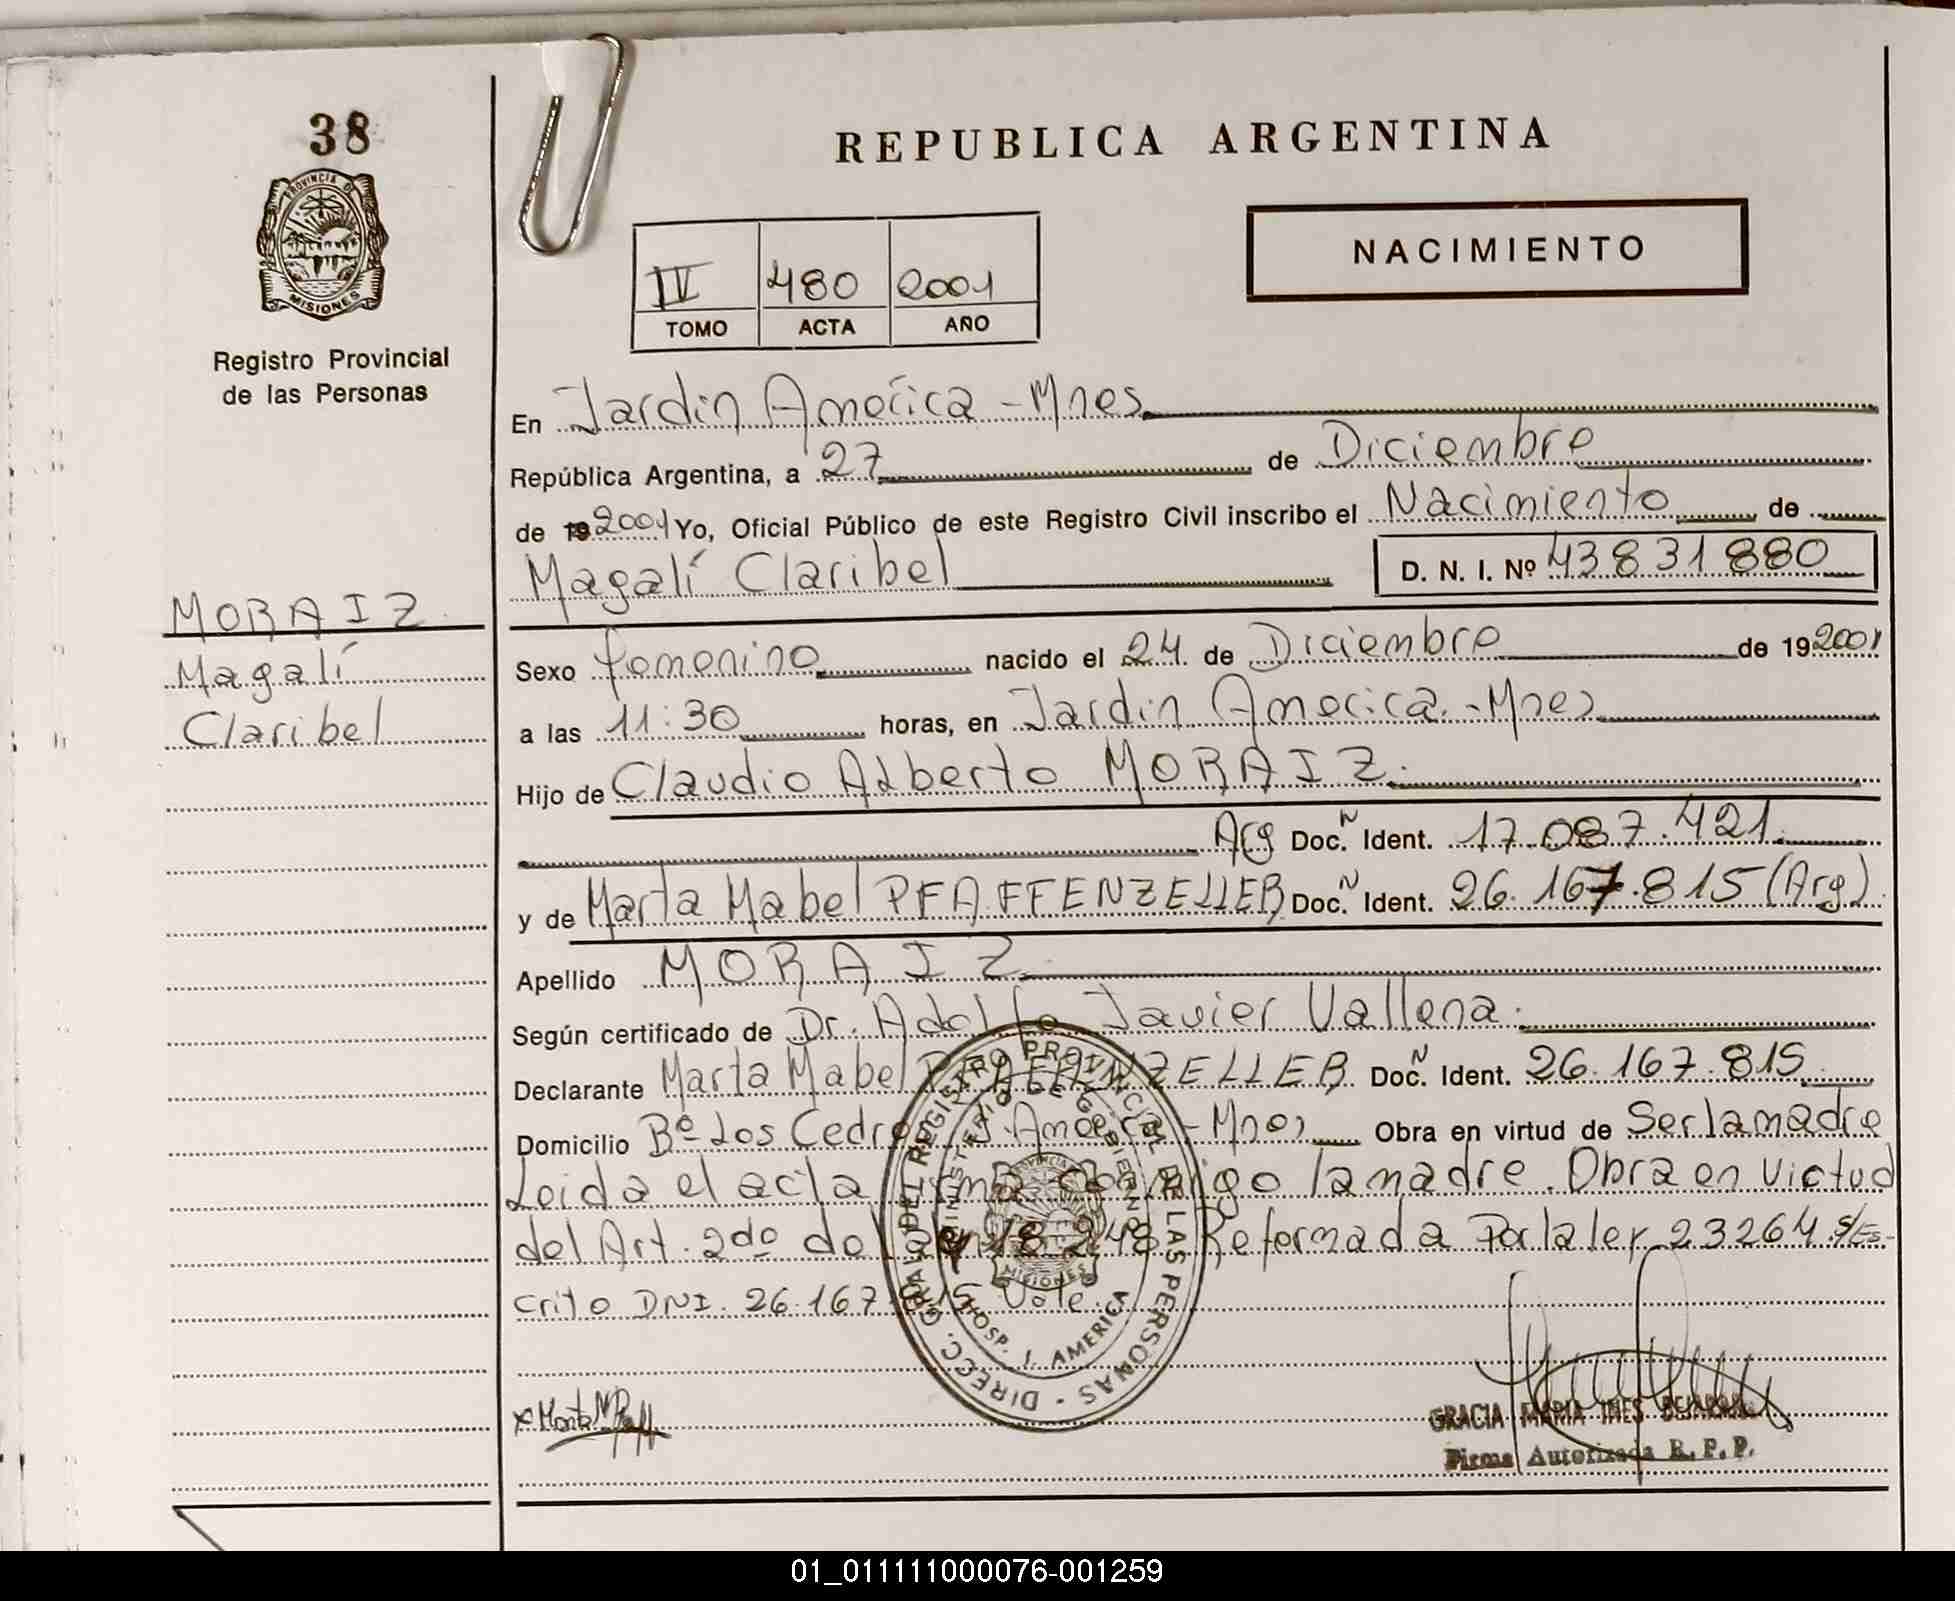 38
REPUBLICA ARGENTINA
PROVINCIA DE
MISIONES
NACIMIENTO
IV 480 2001
TOMO ACTA AÑO
Registro Provincial
de las Personas
En Jardin America - Mnes
República Argentina, a 27 de Diciembre
de 19 2001 Yo, Oficial Público de este Registro Civil inscribo el Nacimiento de
Magalí Claribel D. N. I. Nº 43831880
MORAIZ
Magalí
Claribel
Sexo femenino nacido el 24 de Diciembre de 19 2001
a las 11:30 horas, en Jardin America.-Mnes
Hijo de Claudio Alberto MORAIZ.
Arg Doc. N Ident. 17.087.421.
y de Marta Mabel PFAFFENZELLER Doc. N Ident. 26.167.815 (Arg)
Apellido MORAIZ
Según certificado de Dr. Adolfo Javier Vallena.
Declarante Marta Mabel PFAFFENZELLER Doc. N Ident. 26.167.815
Domicilio Bº Los Cedros J. America - Mnes Obra en virtud de Ser la madre
Leida el acta firma conmigo la madre. Obra en Virtud
del Art. 2do de la ley 18.248 Reformada Por la ley 23264 S/Es-
crito DNI. 26.167.815 Vale.
DIRECC. GRAL. DEL REGISTRO PROVINCIAL DE LAS PERSONAS
MINISTERIO DE GOBIERNO
PROVINCIA
MISIONES
HOSP. J. AMERICA
x Marta M Pfaff
GRACIA MARIA INES
Firma Autorizada R. P. P.
01_011111000076-001259